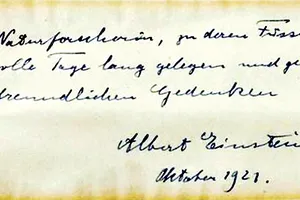 Naturforscherin, zu deren Füsse
volle Tage lang gelegen und ge
freundlichen Gedenken
Albert Einstein
Oktober 1921.